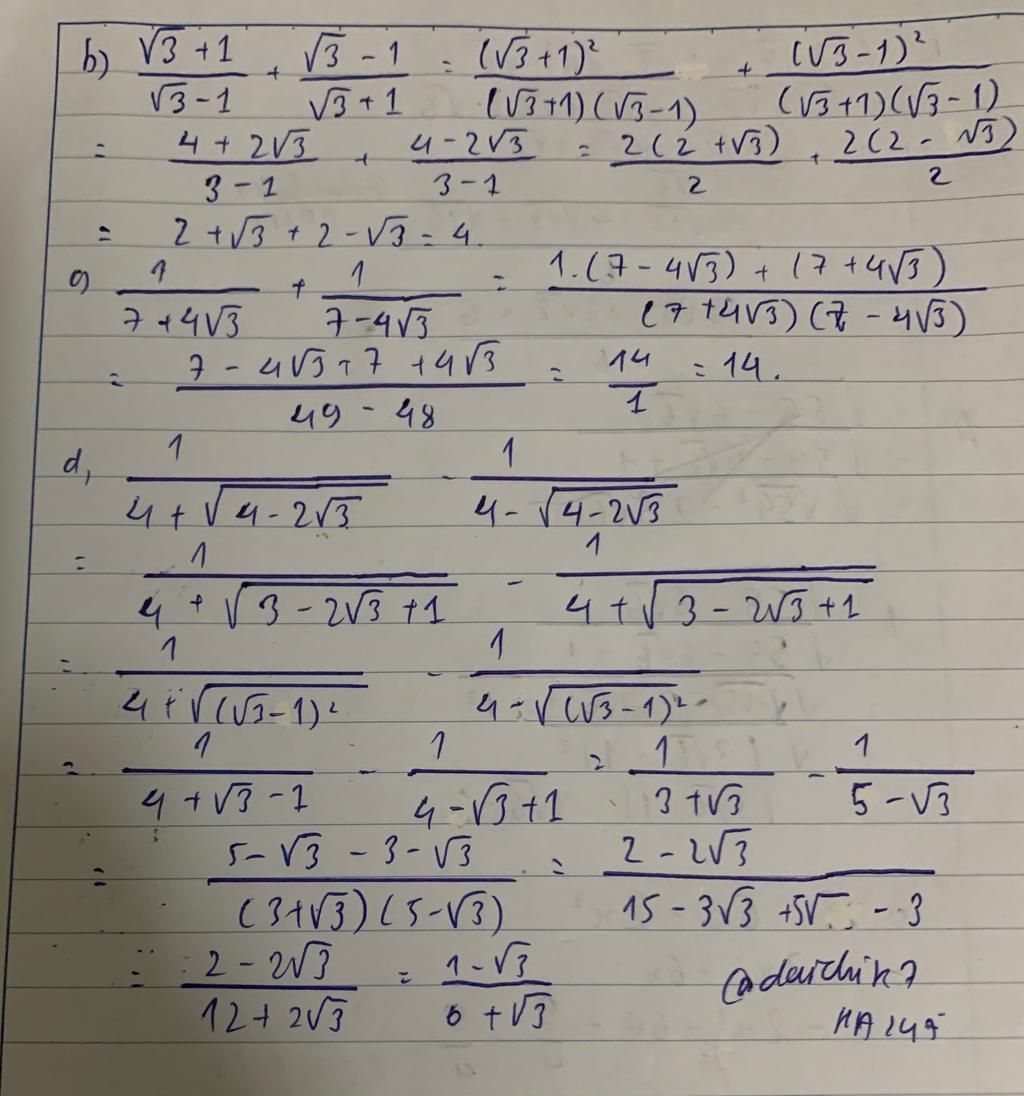 b) (√3 + 1)/(√3 - 1) + (√3 - 1)/(√3 + 1) = (√3 + 1)²/((√3 + 1)(√3 - 1)) + (√3 - 1)²/((√3 + 1)(√3 - 1))
= (4 + 2√3)/(3 - 1) + (4 - 2√3)/(3 - 1) = 2(2 + √3)/2 + 2(2 - √3)/2
= 2 + √3 + 2 - √3 = 4.
1/(7 + 4√3) + 1/(7 - 4√3) = (1.(7 - 4√3) + (7 + 4√3))/((7 + 4√3)(7 - 4√3))
= (7 - 4√3 + 7 + 4√3)/(49 - 48) = 14/1 = 14.
d, 1/(4 + √(4 - 2√3)) - 1/(4 - √(4 - 2√3))
= 1/(4 + √(3 - 2√3 + 1)) - 1/(4 + √(3 - 2√3 + 1))
= 1/(4 + √((√3 - 1)²)) - 1/(4 - √((√3 - 1)²))
= 1/(4 + √3 - 1) - 1/(4 - √3 + 1) = 1/(3 + √3) - 1/(5 - √3)
= (5 - √3 - 3 - √3)/((3 + √3)(5 - √3)) = (2 - 2√3)/(15 - 3√3 + 5√ - 3)
= (2 - 2√3)/(12 + 2√3) = (1 - √3)/(6 + √3)